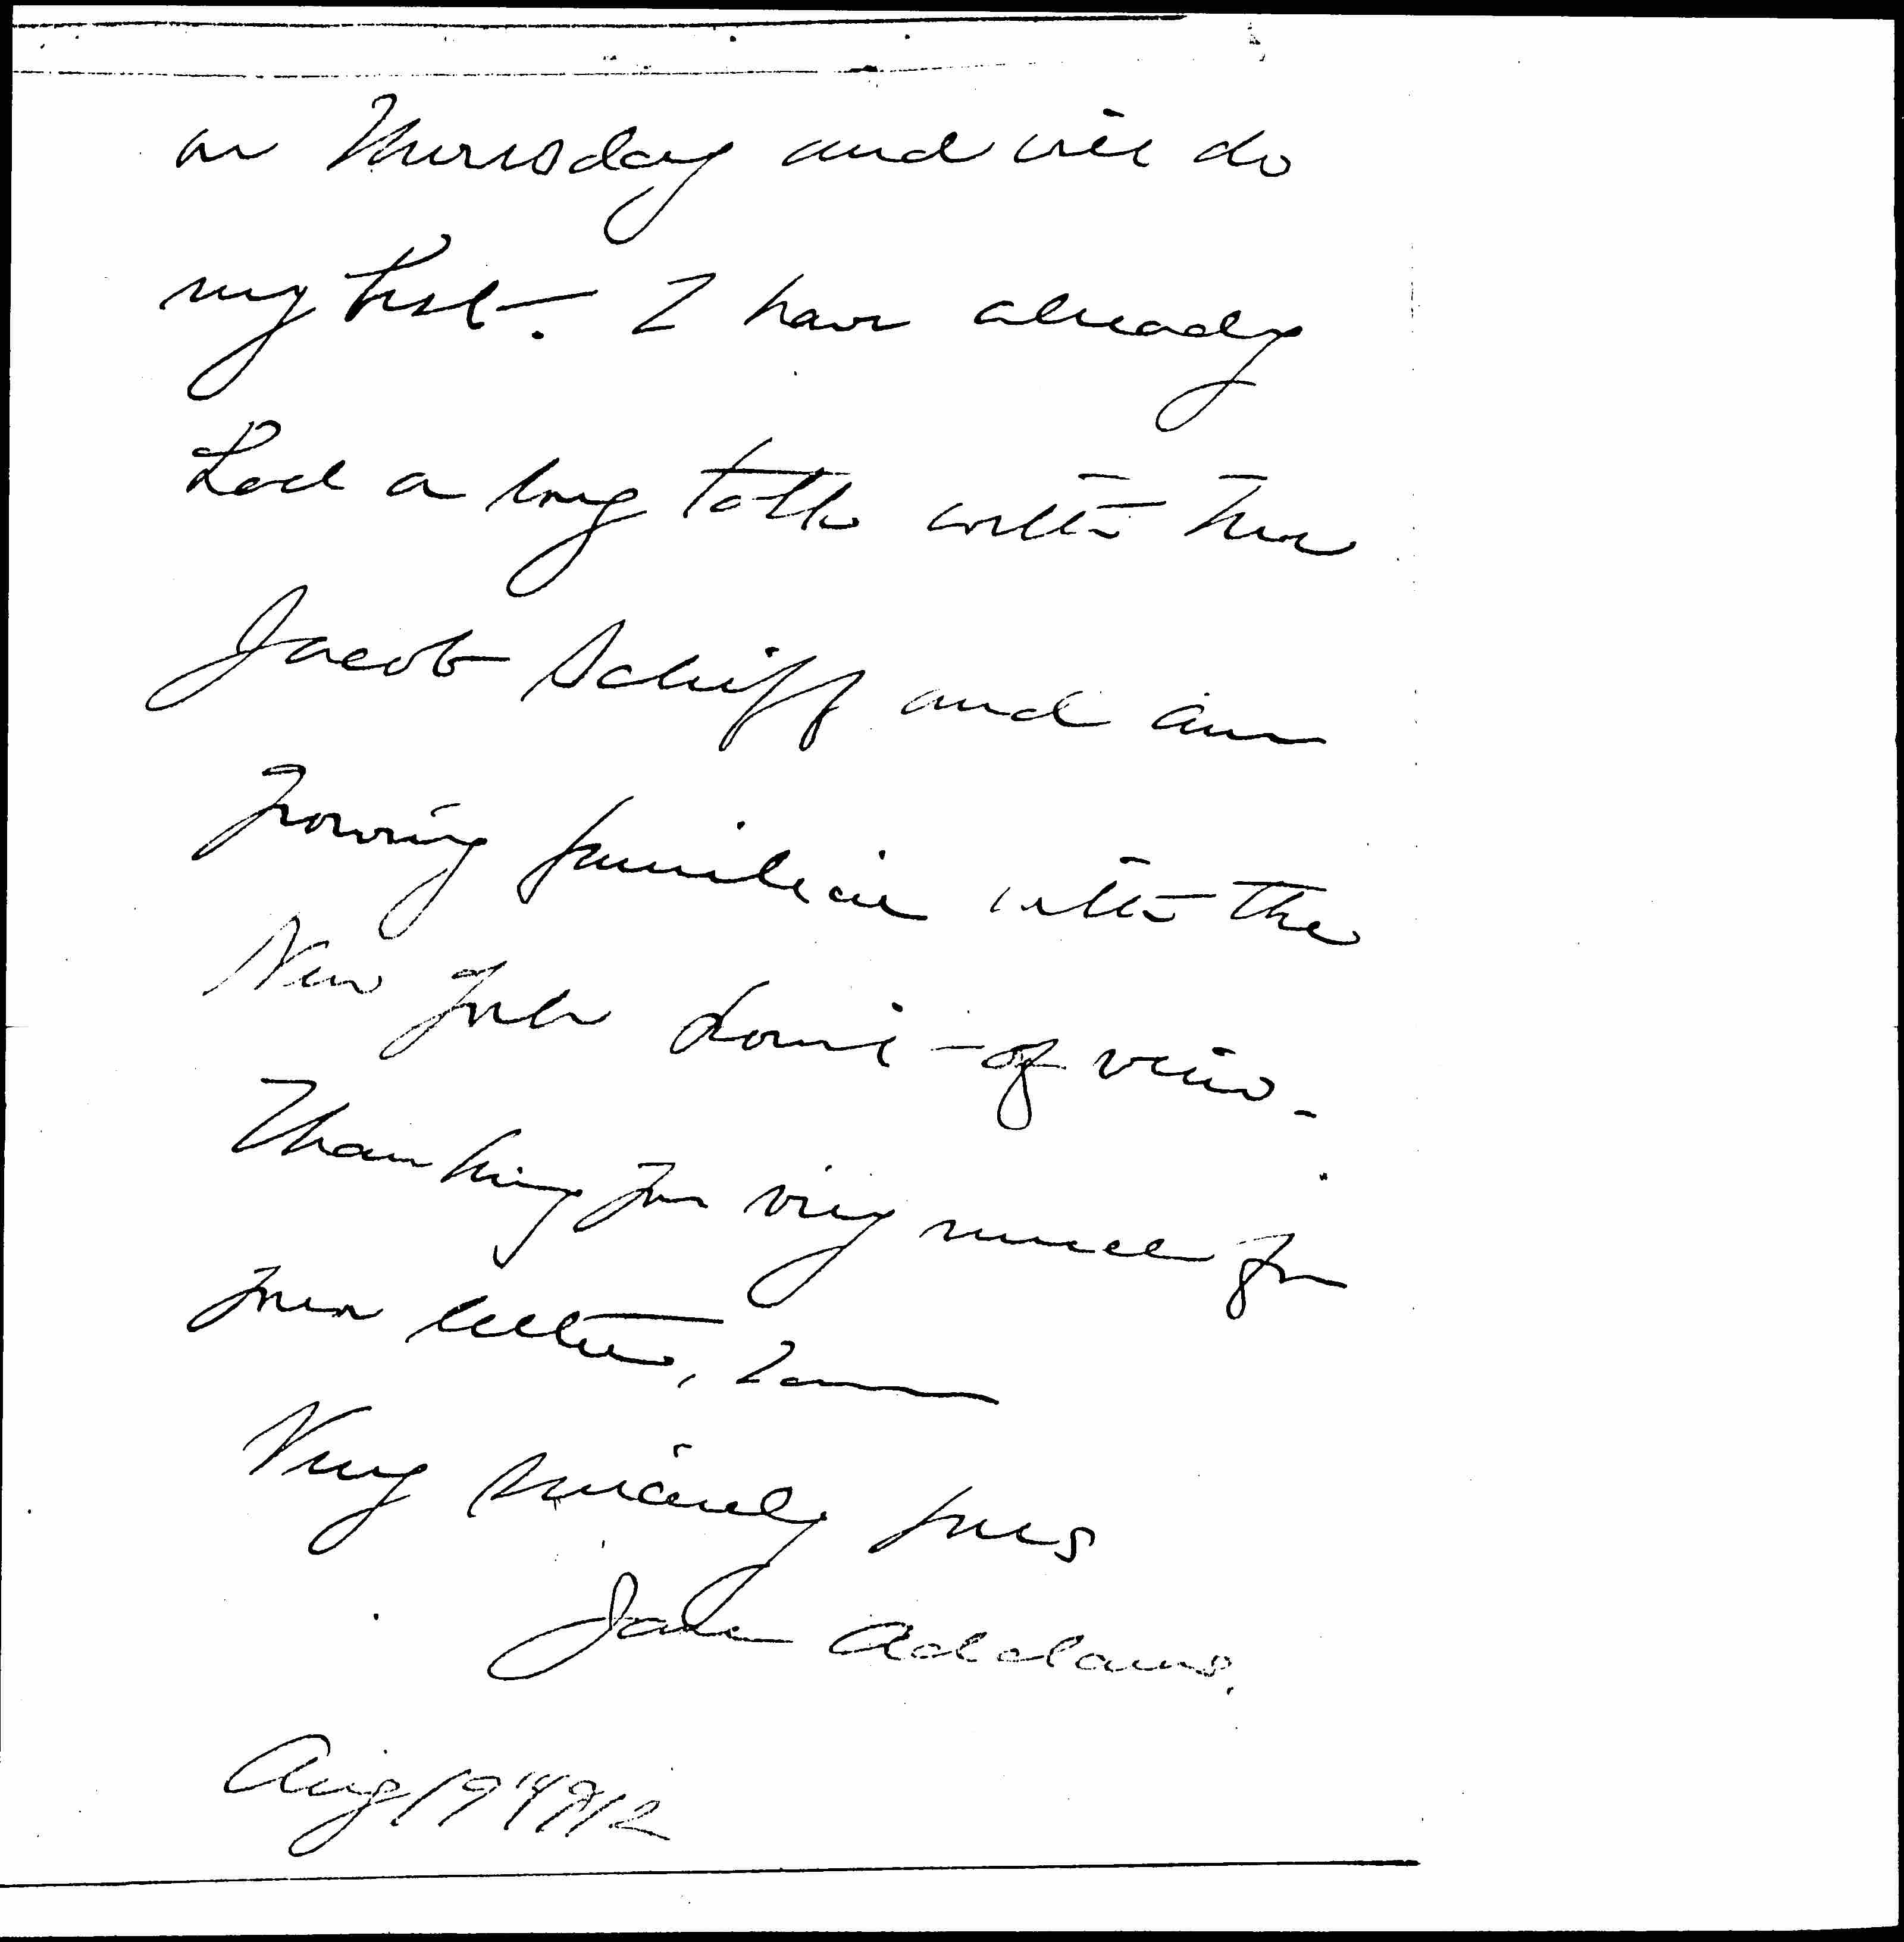 on Thursday and will do
my best. I have already
had a long talk with
Jacob Schiff and am
growing familiar with the
New York point of view.
Thanking you very much for
your letter, I am
Very sincerely yours
Jane Addams.
Aug 19" 1912